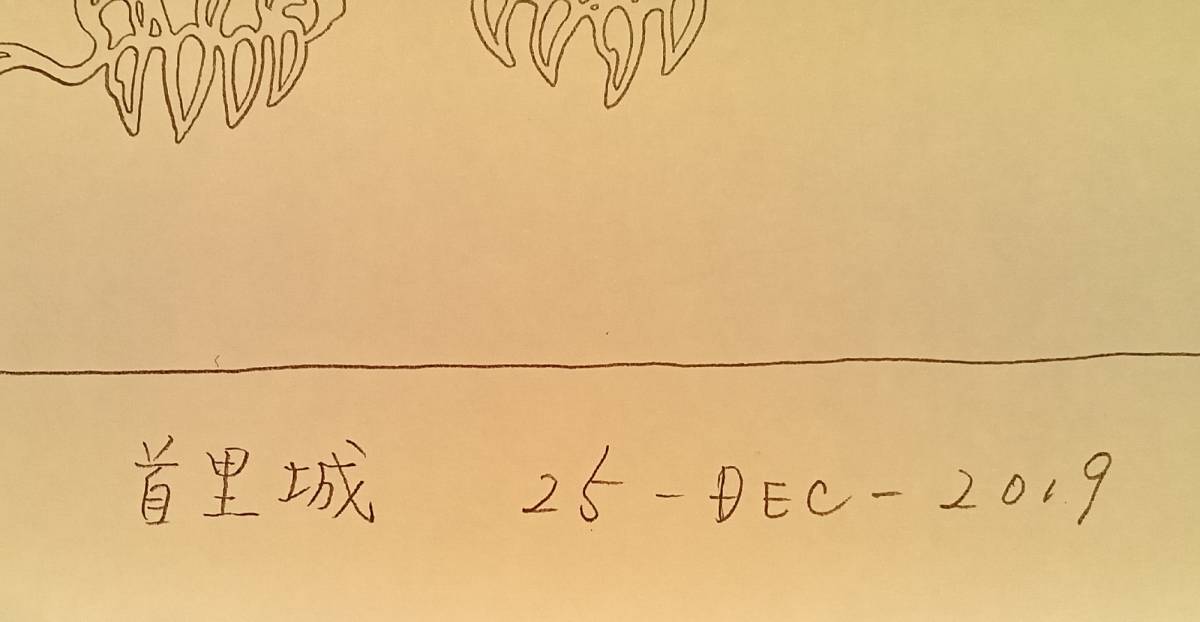 首里城 25-DEC-2019